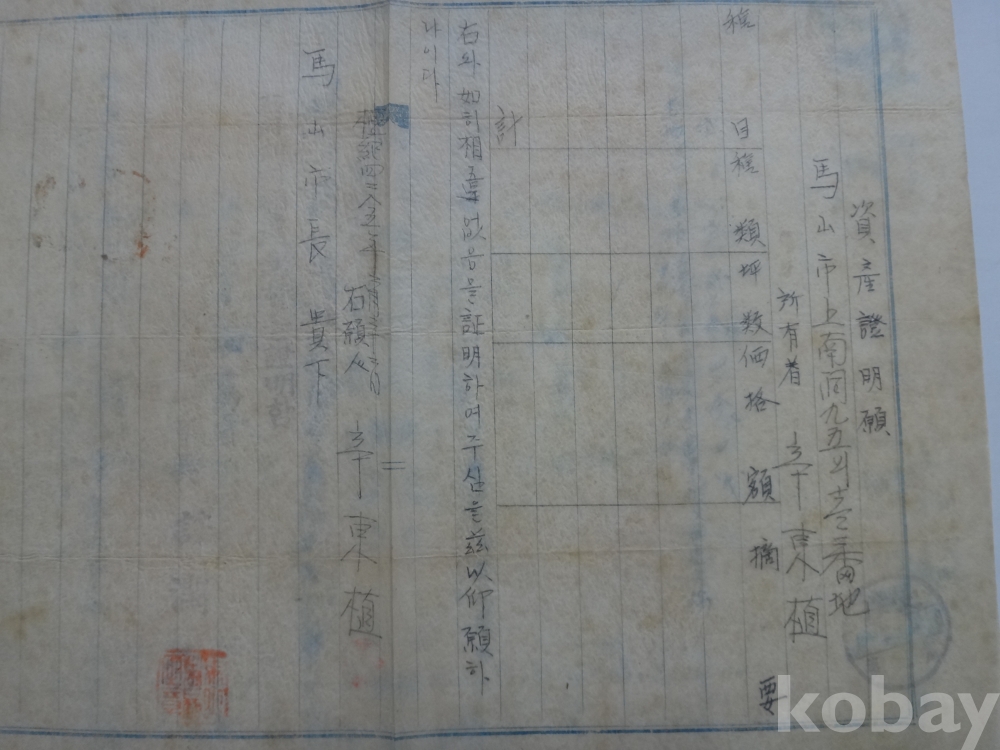 資産證明願
馬山市上南洞九五의壱番地
所有者 辛東植
種目 種類 坪数 価格 額 摘要
計
右와如히相違없음을証明하여주심을玆以仰願하
나이다
檀紀四二八五年
右願人 辛東植
馬山市長 貴下
kobay